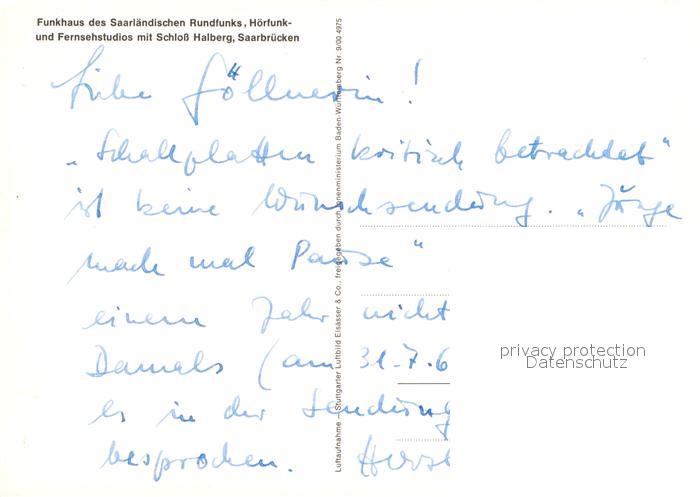 Funkhaus des Saarländischen Rundfunks, Hörfunk-
und Fernsehstudios mit Schloß Halberg, Saarbrücken
Liebe Göllnerin!
„Schallplatten kritisch betrachtet"
ist keine Wunschsendung. „Junge
mach mal Pause"
einem Jahr nicht
Damals (am 31.7.6
es in der Sendung
besprochen. Horst
Luftaufnahme – Stuttgarter Luftbild Elsässer & Co., freigegeben durch Innenministerium Baden-Württemberg Nr. 9/00 4975
privacy protection
Datenschutz